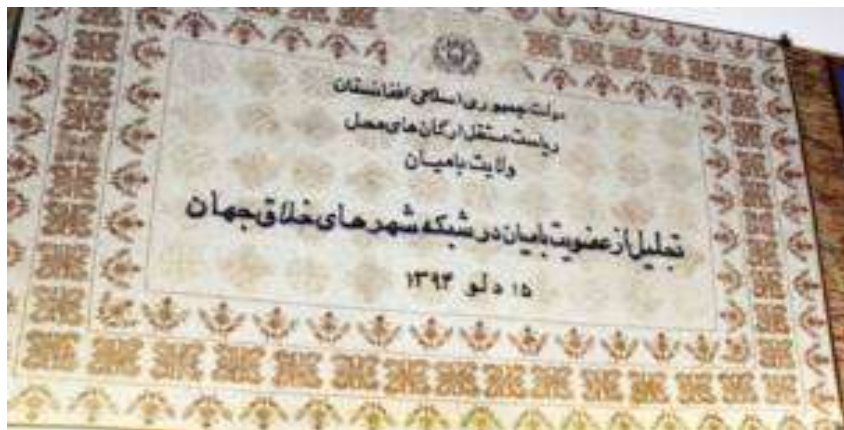 دولت جمهوری اسلامی افغانستان
ریاست مستقل ارگان های محل
ولایت بامیان
تجلیل از عضویت بامیان در شبکه شهرهای خلاق جهان
۱۵ دلو ۱۳۹۴